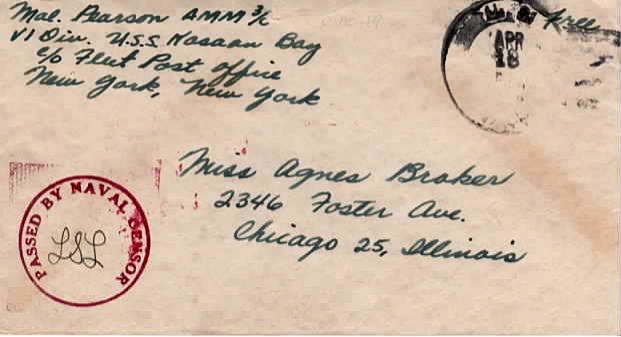 Mal. Pearson AMM 3/c
V1 Div. U.S.S. Kasaan Bay
c/o Fleet Post Office
New York, New York
Free
APR
18
Miss Agnes Broker
2346 Foster Ave.
Chicago 25, Illinois
PASSED BY NAVAL CENSOR
LSL